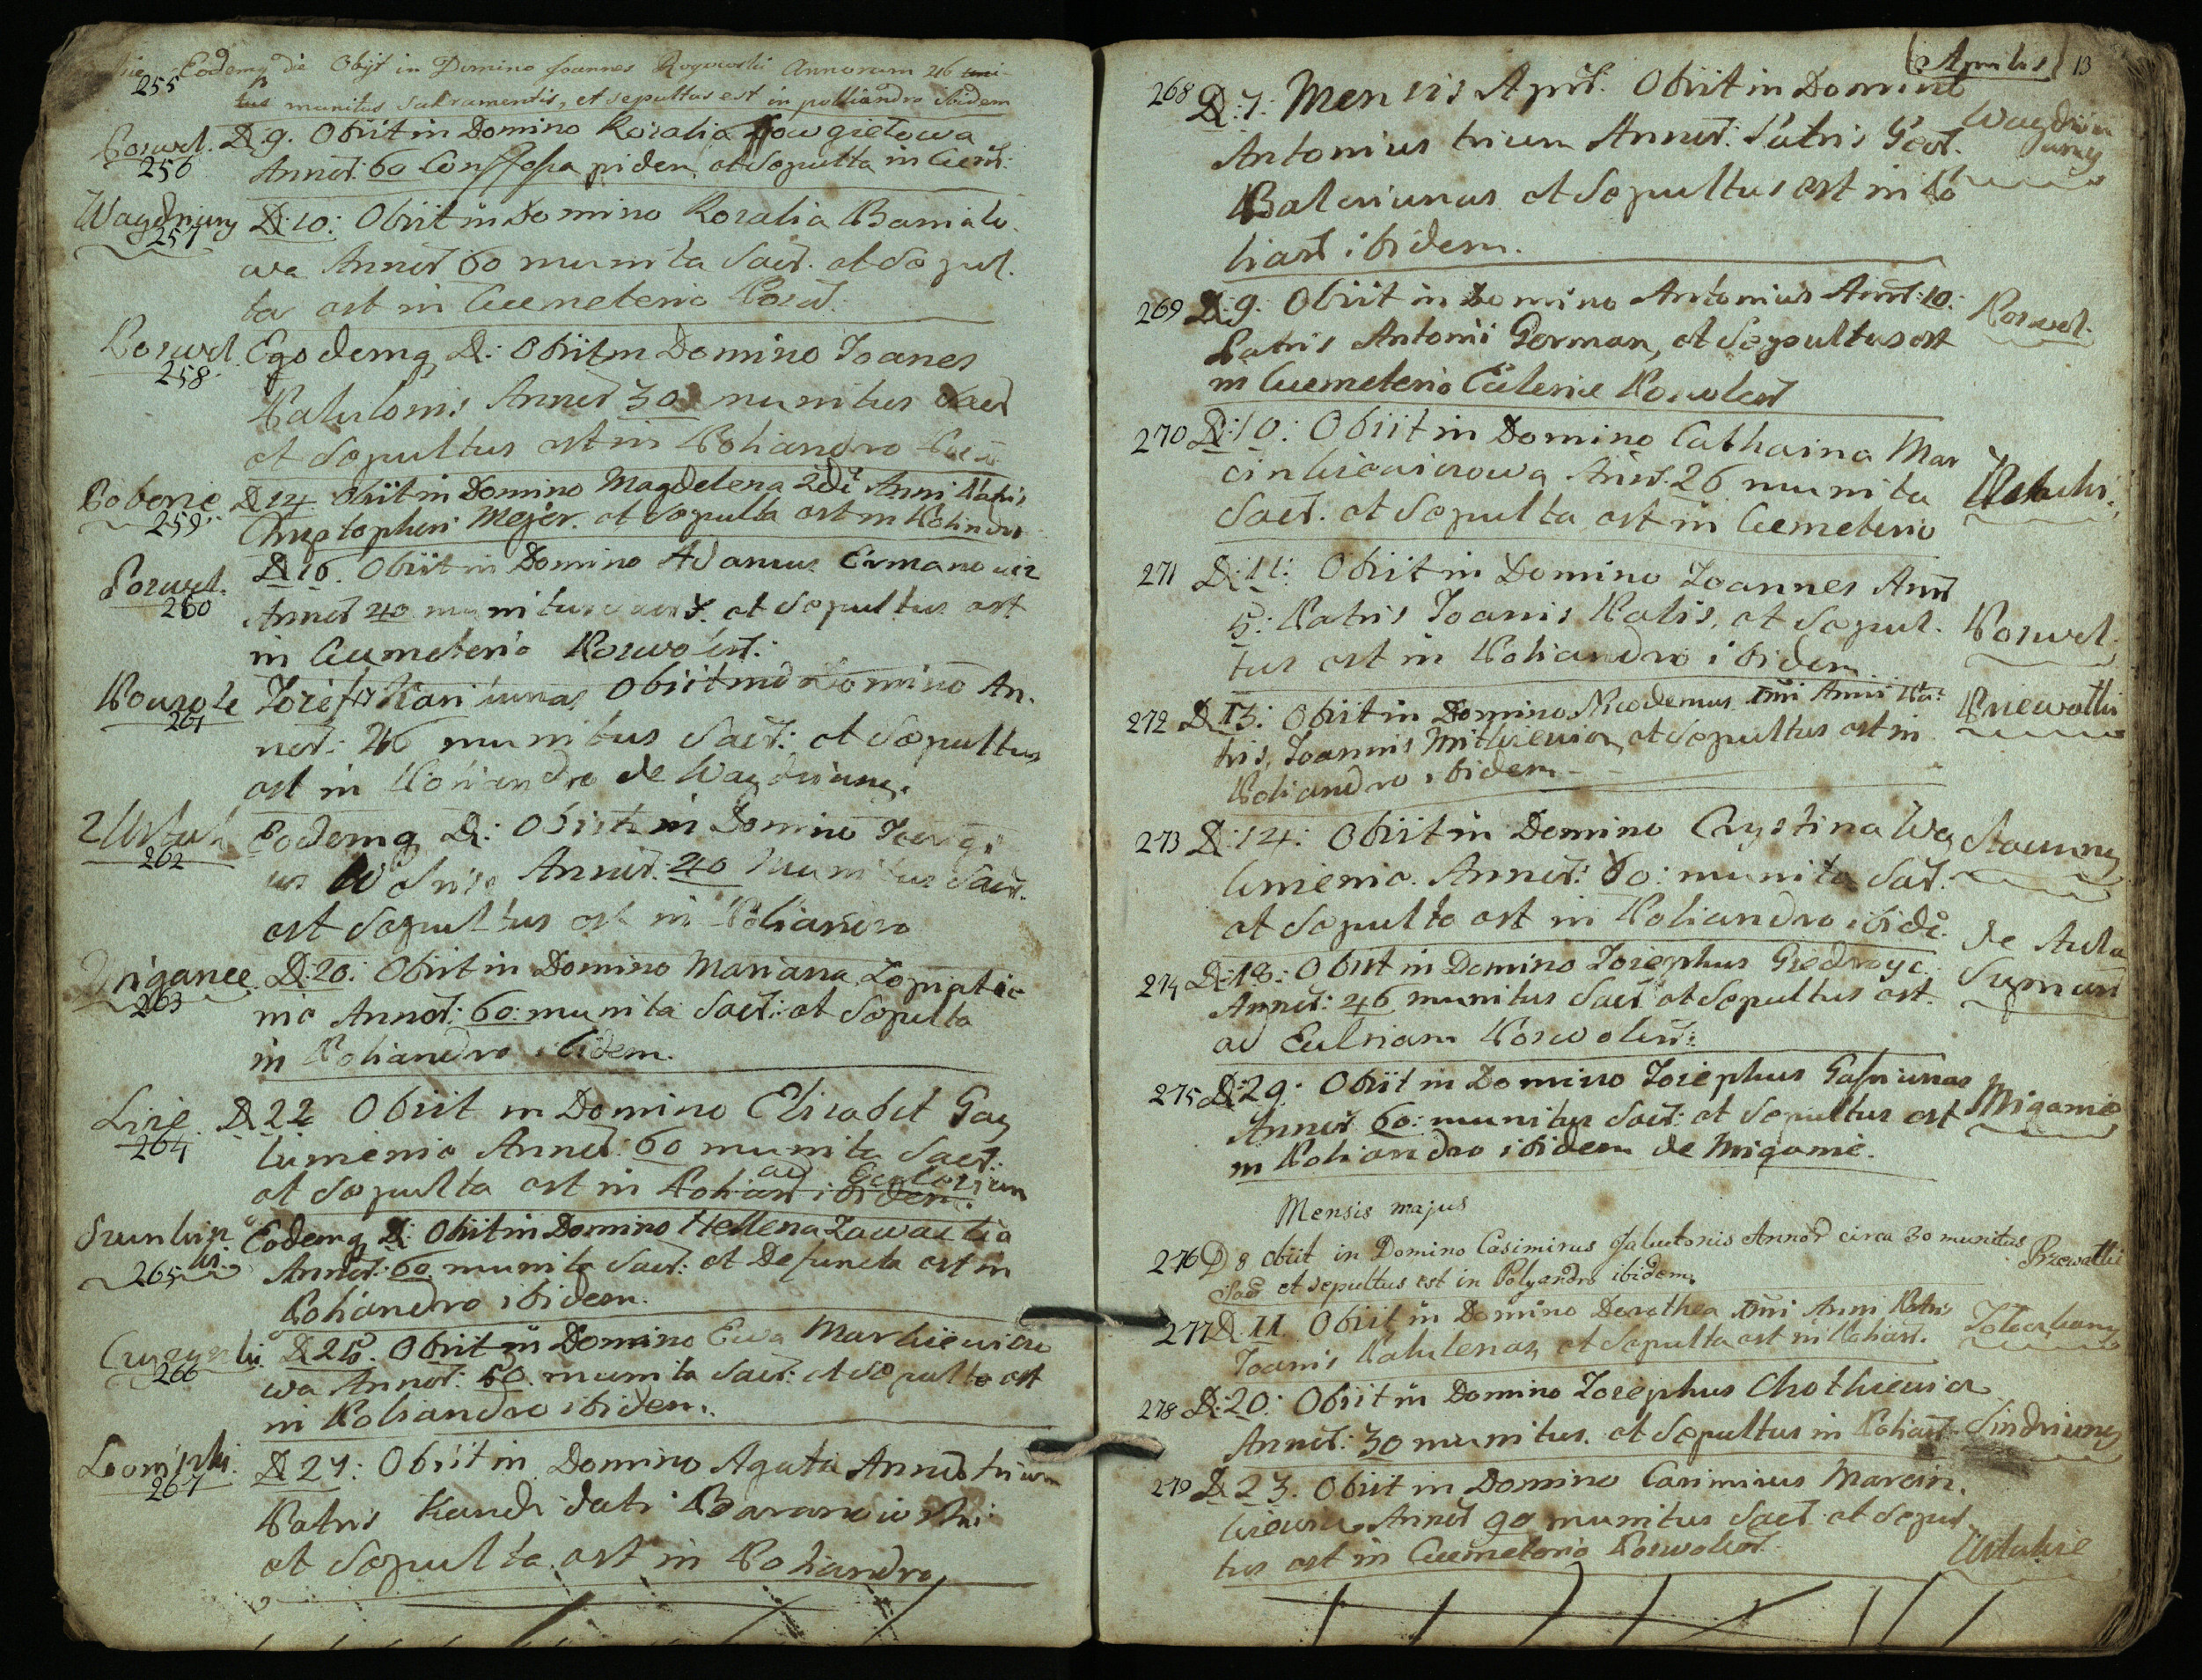 Eodemq die Obijt in Domino Joannes Rogowski Annorum 46
255
tus munitus Sakramentis, et sepultus est in polliandro ibidem
Poswol. D. 9. Obiit in Domino Rozalia Dowgietowa
256 Annor: 60 Conffessa pridem, et Sepulta in Cem:
Wagdziuny D: 10: Obiit in Domino Rozalia Baniulo.
257
wa Annor 60 munita Sacr. et Sepul.
ta est in Cuemeterio Posw:
Poswol Egodemq D: Obiit in Domino Joanes
258
Patulonis Annor 30 munitus Sacr
et Sepultus est in Poliandro
Poberze D 14 Obiit in Domino Magdelena 2di Anni Patris
259
Chrystopheri Mejer. et Sepulta est in Poliandro
Poswol. D 16. Obiit in Domino Adamus Ermanowicz
260 Annor 40 munitus Sacr. et Sepultus est
in Cuemeterio Poswolen:
261 Jozef Kariunas Obiit in Domino An.
nor: 46 munitus Sacr: et Sepultus
est in Poliandro de Wagdziuny.
Eodemq D: Obiit in Domino Jeorgi
262
us Annor: 40 Munitus Sacr.
est Sepultus est in Poliandro
Migance D: 20: Obiit in Domino Mariana Lopatie
263
nia Annor: 60: munita Sacr: et Sepulta
in Poliandro ibidem.
D 22 Obiit in Domino Elizabet Gay
264
limienia Annor: 60 munita Sacr:
ad Ecclesiam
et Sepulta est in Polian ibidem.
Eodemq D: Obiit in Domino Hellena Zawackia
265 Annor: 60 munita Sacr: et Defuncta est in
Poliandro ibidem.
D 25. Obiit in Domino Ewa Markiewiczo
266
wa Annor: 50. munita Sacr: et Sepulta est
in Poliandro ibidem.
D 27: Obiit in Domino Agata Annor trium
267
Patris Kandidati Baranowski
et Sepulta est in Poliandro
Aprilis 13
268 D: 7: Mensis Apr. Obiit in Domino
Wagdziu
uny
Antonius trium Annor: Patris Geor.
Baleriunas et Sepultus est in Po
lian ibidem.
269 D: 9. Obiit in Domino Antonius Ann: 10: Poswol.
Patris Antonii German, et Sepultus est
in Cuemeterio Eclesiae Poswolen
270 D: 10: Obiit in Domino Catharina Mar
cinkiewiczowa Ann. 26 munita
Sacr. et Sepulta est in Cemeterio
271 D: 11: Obiit in Domino Joannes Ann
5: Patris Joanis Kalis, et Sepul. Poswol.
tus est in Poliandro ibidem
272 D 13: Obiit in Domino Nicodemus Anni Pa: Pniewallki
tris, Joannis Mitkiewicz, et Sepultus est in
Poliandro ibidem
273 D: 14: Obiit in Domino Crystina Wey
limienia. Annor: 60: munita Sacr.
et Sepulta est in Poliandro ibide. de Aula
274 D: 18: Obiit in Domino Jozephus Giedroyc.
Annor: 46 munitus Sacr et Sepultus est
ad Eclesiam Poswolen:
275 D: 29: Obiit in Domino Jozephus Gasiunas
Migance
Annor 60: munitus Sacr: et Sepultus est
in Poliandro ibidem de Migance.
Mensis majus
276 D 8 Obiit in Domino Casimirus Jaluctonis Annor circa 30 munitus
Sacr et sepultus est in Polyandro ibidem.
277 D. 11 Obiit in Domino Dorothea Anni Patris
Joanis Patulenas, et Sepulta est in Polian.
278 D: 20: Obiit in Domino Jozephus Chotkiewicz
Annor: 30 munitus. et Sepultus in Polian. Sindziuny
279 D 23. Obiit in Domino Casimirus Marcin.
kiewicz Annor 90 munitus Sacr et Sepul
tus est in Cuemeterio Poswolen.